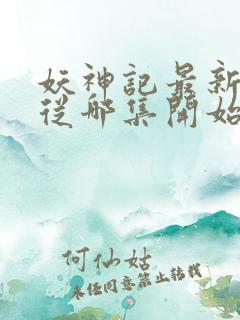 妖神記最新
從哪集開始
何仙姑
未经同意禁止转载